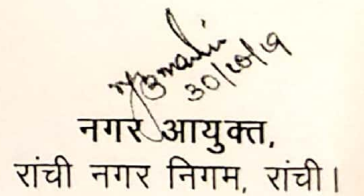 30/10/19
नगर आयुक्त,
रांची नगर निगम, रांची।